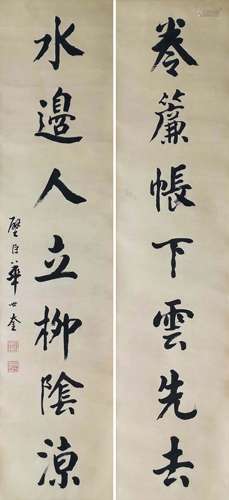 卷簾帳下雲先去
水邊人立柳陰涼
壁臣華世奎